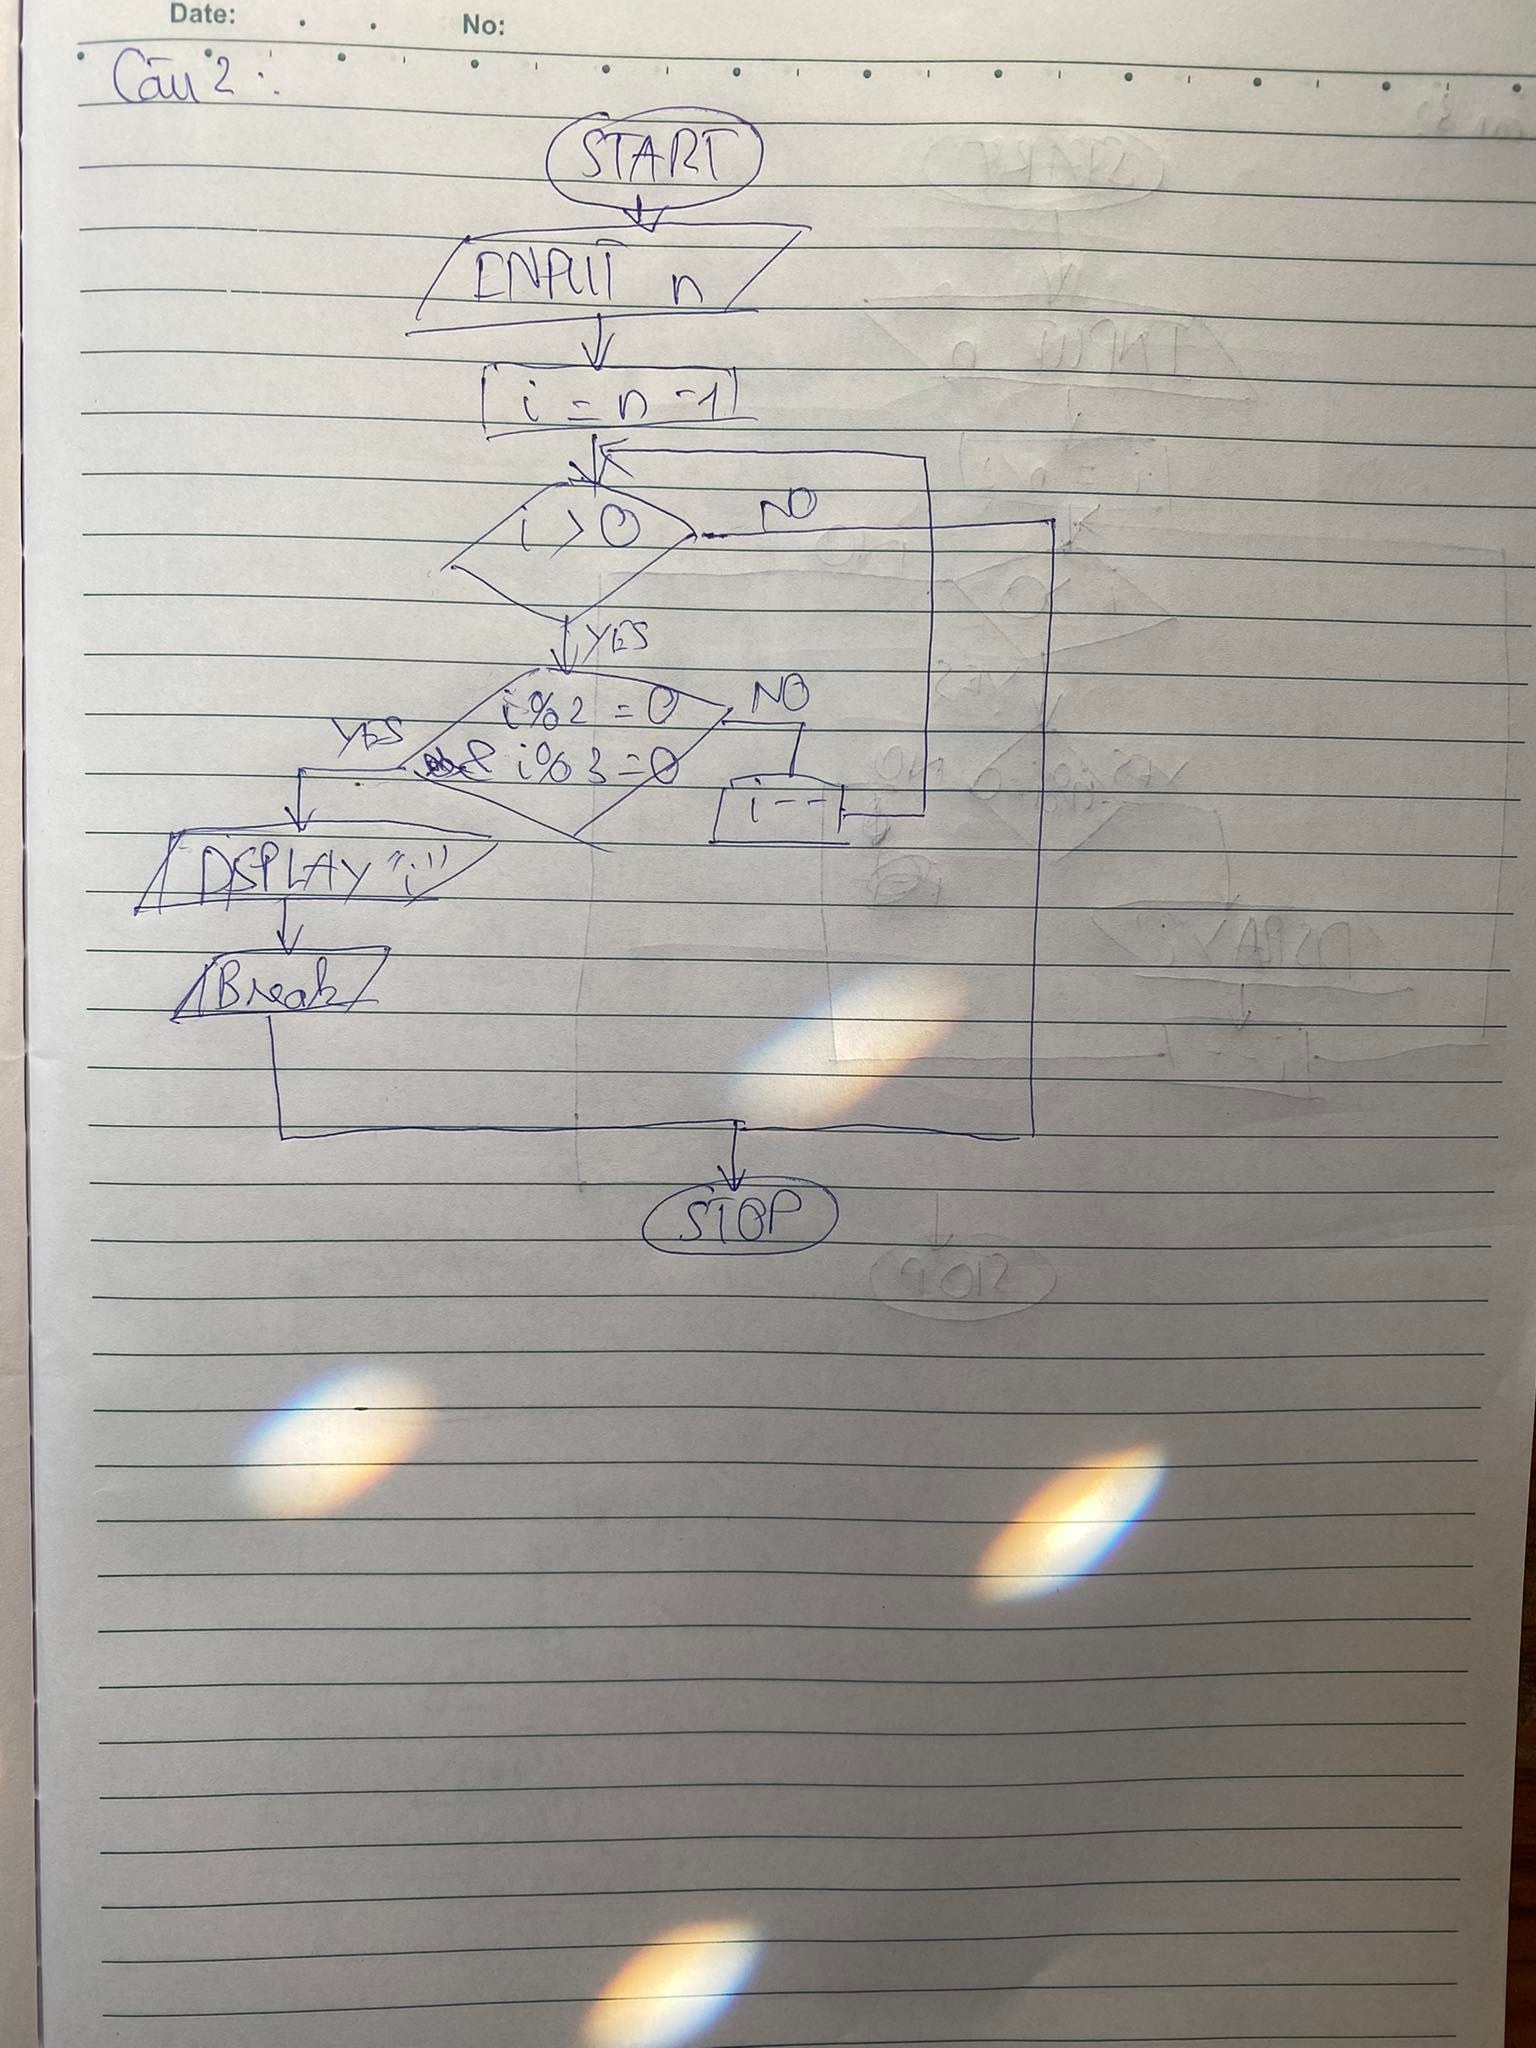 Date: No:
Câu 2:
START
INPUT n
i = n - 1
i > 0
NO
YES
i%2 = 0
NO
YES
& i%3 = 0
i--
DSPLAY "i"
Break
STOP